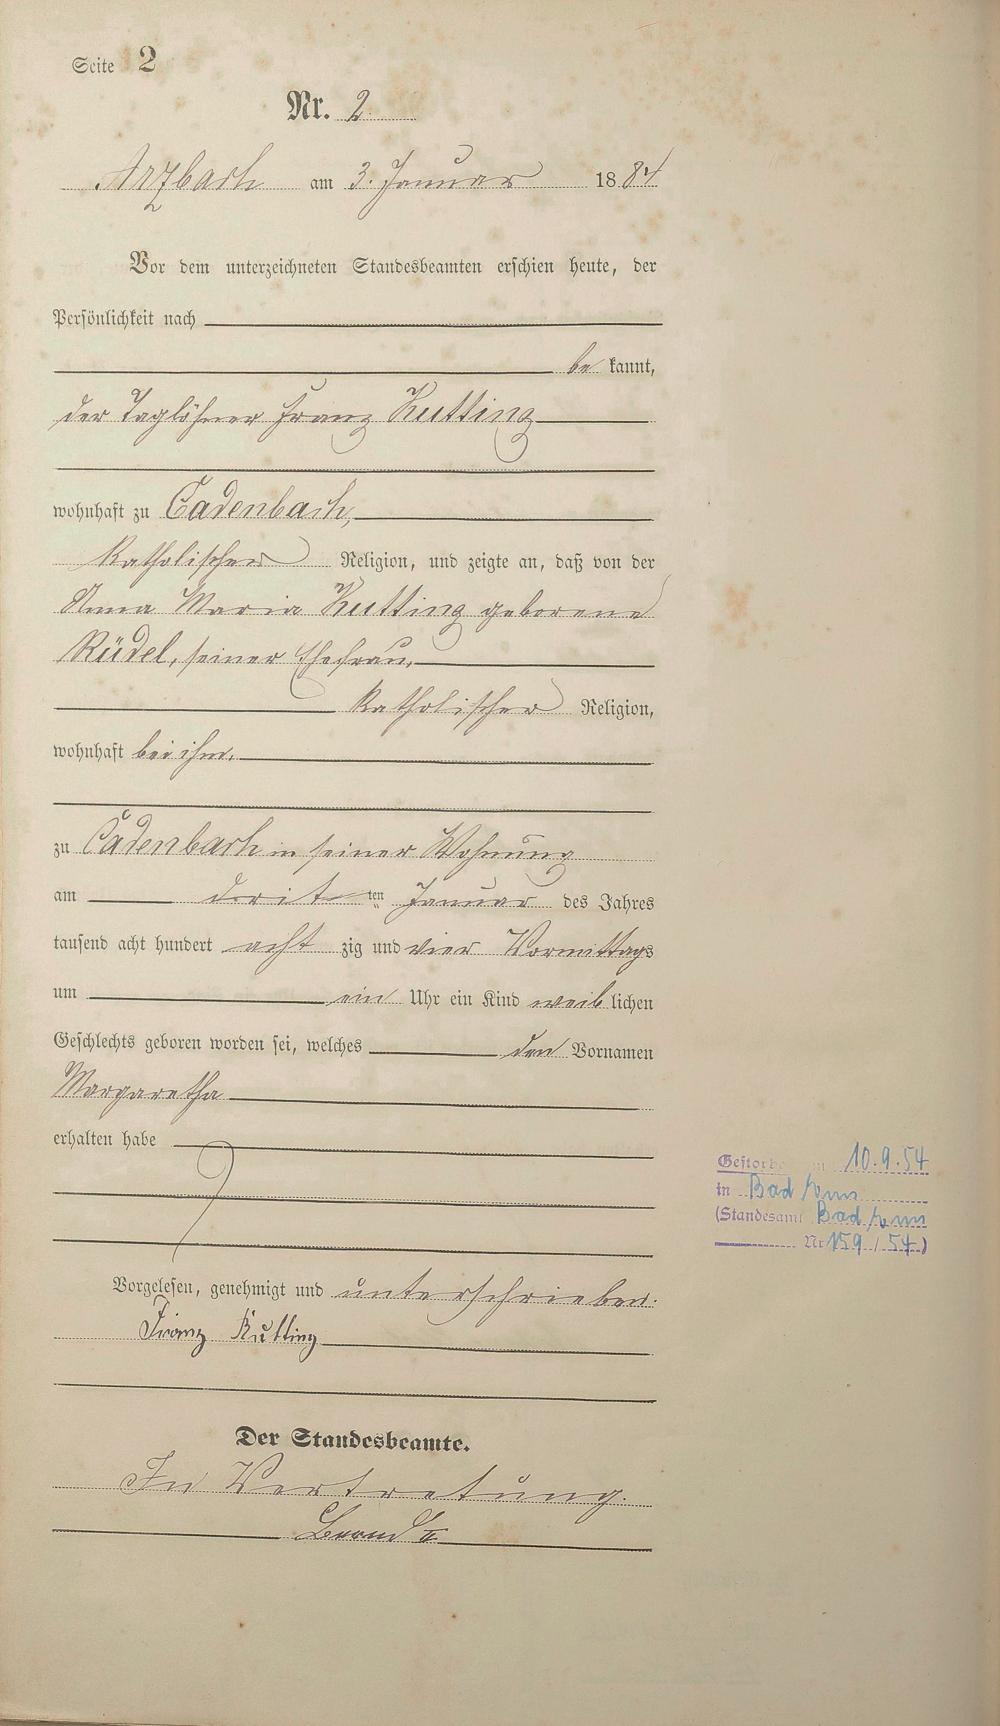 Seite 2
Nr. 2
Arzbach am 3. Januar 1884
Vor dem unterzeichneten Standesbeamten erschien heute, der
Persönlichkeit nach
be kannt,
der Taglöhner Franz Kutting
wohnhaft zu Cadenbach,
katholischer Religion, und zeigte an, daß von der
Anna Maria Kutting geborene
Rüdel, seiner Ehefrau,
katholischer Religion,
wohnhaft bei ihm,
zu Cadenbach in seiner Wohnung
am drit ten Januar des Jahres
tausend acht hundert acht zig und vier Vormittags
um ein Uhr ein Kind weib lichen
Geschlechts geboren worden sei, welches den Vornamen
Margaretha
erhalten habe
Vorgelesen, genehmigt und unterschrieben.
Franz Kutting
Der Standesbeamte.
In Vertretung.
Gestorben am 10.9.54
in Bad Ems
(Standesamt Bad Ems
Nr 159 / 54)